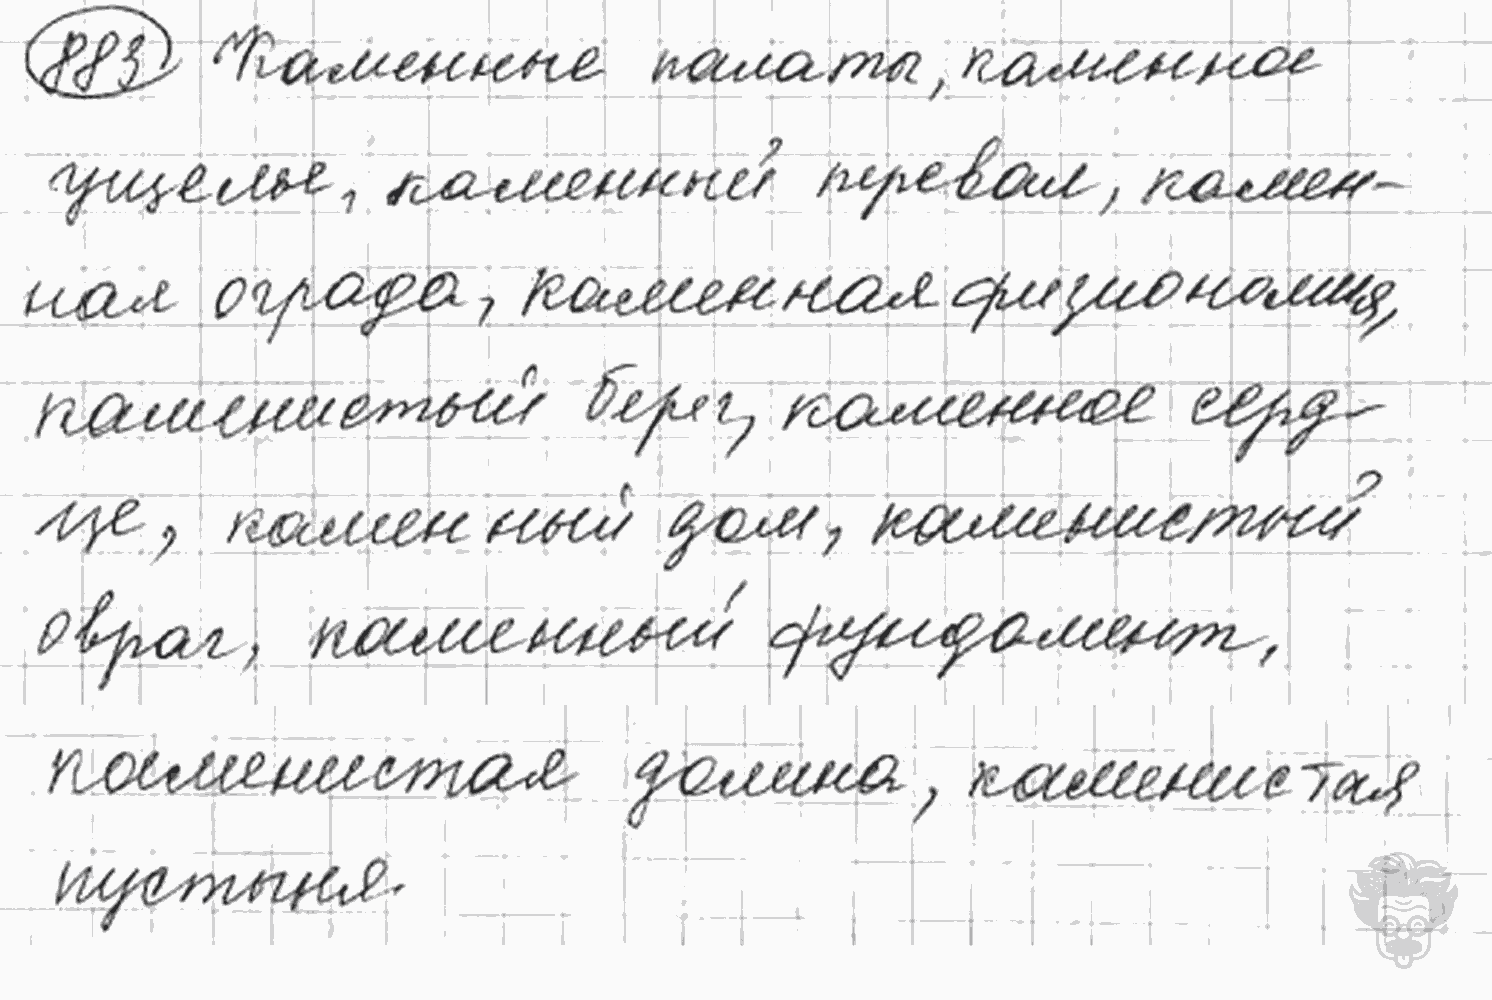 883 Каменные палаты, каменное
ущелье, каменный перевал, камен-
ная ограда, каменная физиономия,
каменистый берег, каменное серд-
це, каменный дом, каменистый
овраг, каменный фундамент,
каменистая долина, каменистая
пустыня.